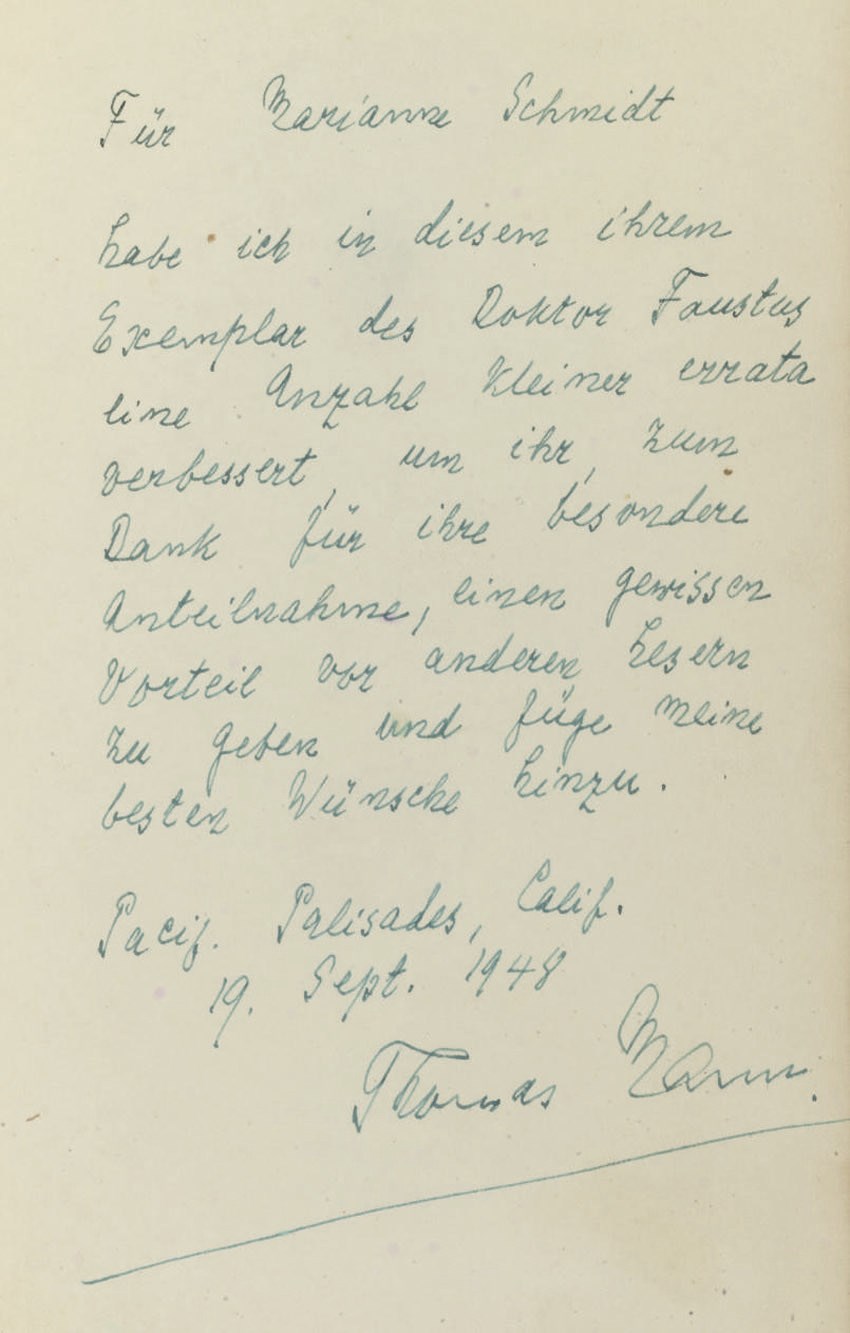 Für Marianne Schmidt
habe ich in diesem ihrem
Exemplar des Doktor Faustus
eine Anzahl kleiner errata
verbessert, um ihr, zum
Dank für ihre besondere
Anteilnahme, einen gewissen
Vorteil vor anderen Lesern
zu geben und füge meine
besten Wünsche hinzu.
Pacif. Palisades, Calif.
19. Sept. 1948
Thomas Mann.